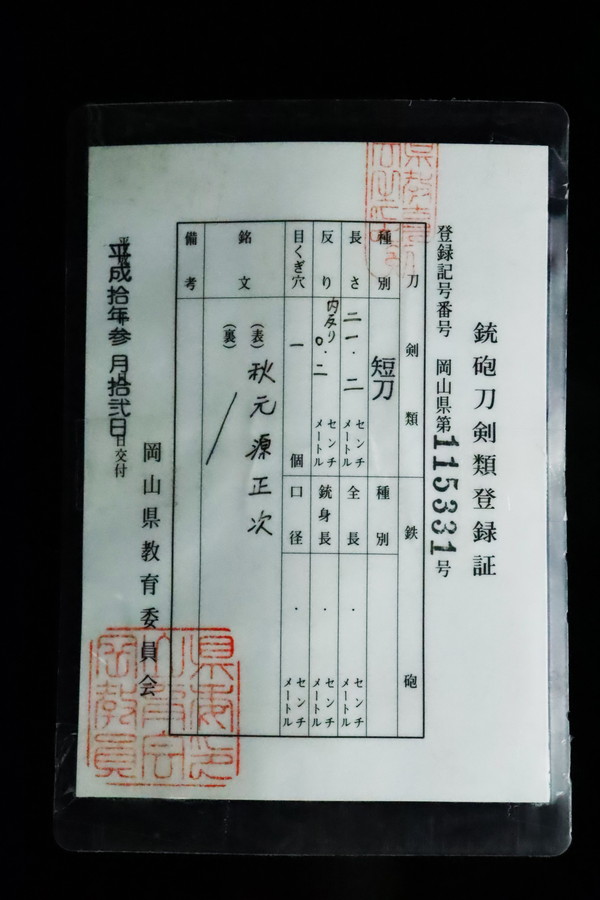 銃砲刀剣類登録証
登録記号番号 岡山県第115331号
刀剣類
鉄砲
種別 短刀
長さ 二一.二 センチメートル
反り 内反り 〇.二 センチメートル
目くぎ穴 一 個
銘文 (表) 秋元源正次
(裏)
備考
種別
全長 . センチメートル
銃身長 . センチメートル
口径 . センチメートル
平成拾年参月拾弐日交付
岡山県教育委員会